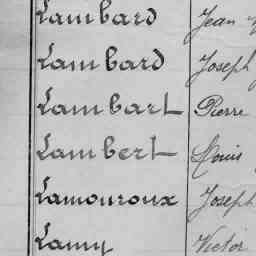 Lambard Jean
Lambard Joseph
Lambart Pierre
Lambert Louis
Lamouroux Joseph
Lamy Victor